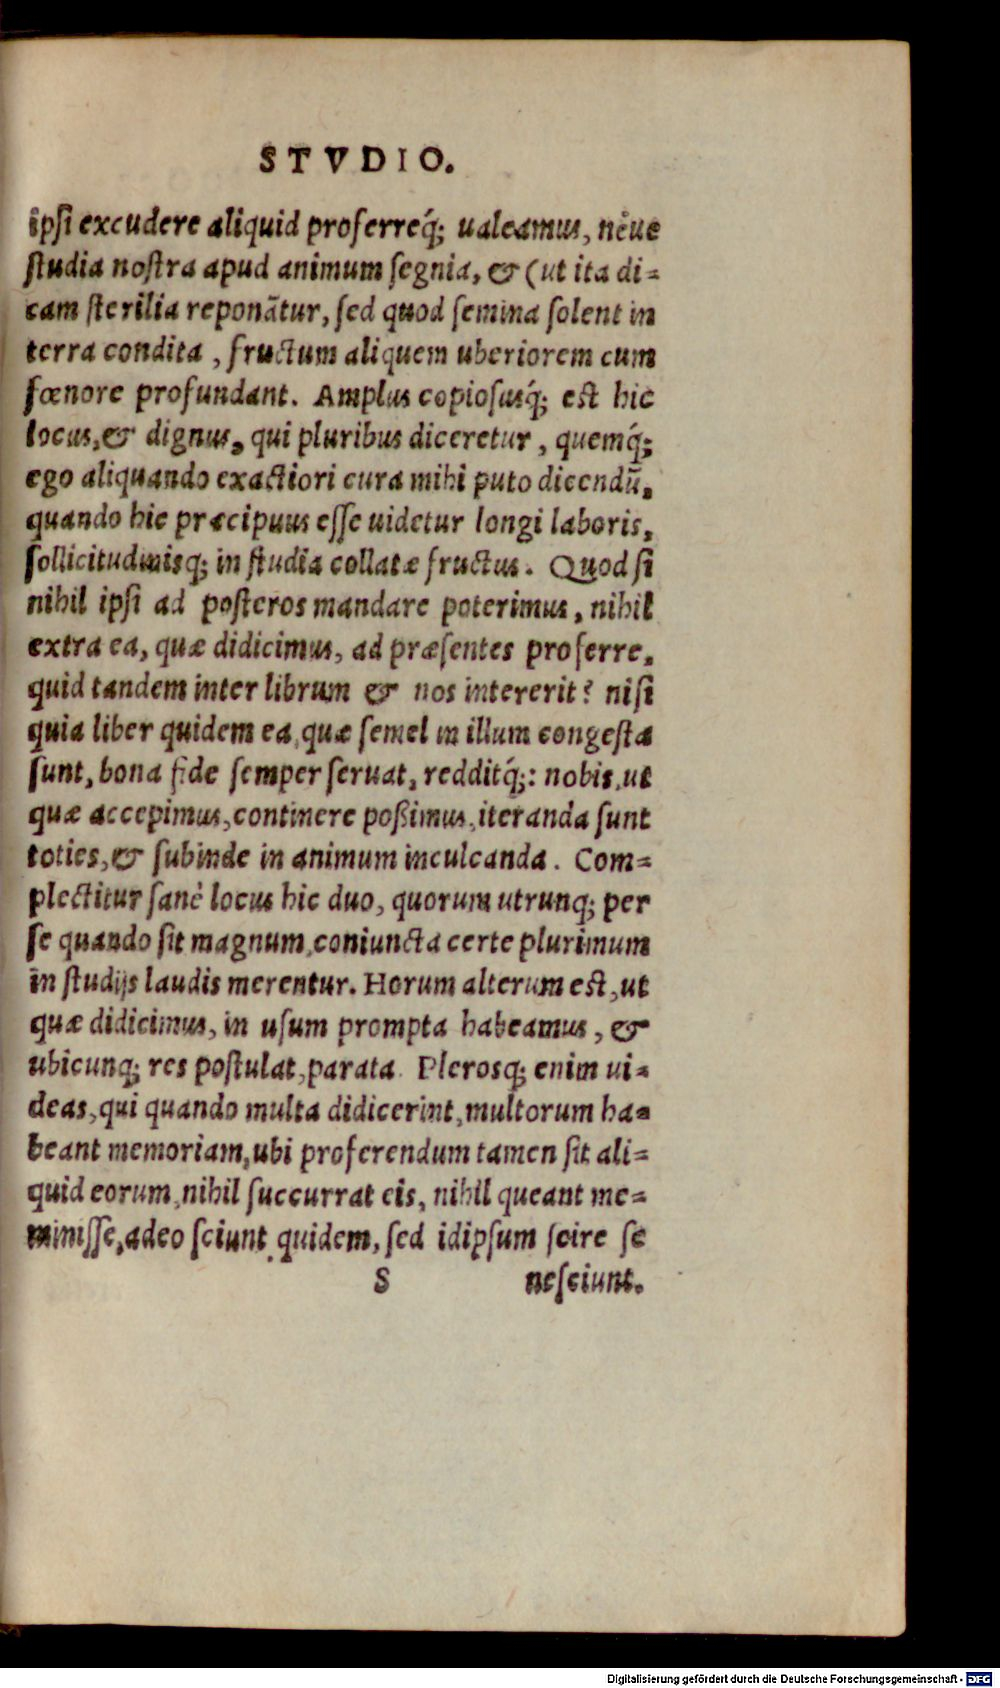 STVDIO.
ipſi excudere aliquid proferreq́; ualeamus, nève
ſtudia noſtra apud animum ſegnia, & (ut ita di-
cam ſterilia reponãtur, ſed quod ſemina ſolent in
terra condita, fructum aliquem uberiorem cum
fœnore profundant. Amplus copioſusq́; est hic
locus, & dignus, qui pluribus diceretur, quemq́;
ego aliquando exactiori cura mihi puto dicendũ,
quando hic præcipuus eſſe uidetur longi laboris,
ſollicitudinisq; in ſtudia collatæ fructus. Quod ſi
nihil ipſi ad poſteros mandare poterimus, nihil
extra ea, quæ didicimus, ad præſentes proferre,
quid tandem inter librum & nos intererit? niſi
quia liber quidem ea, quæ ſemel in illum congeſta
ſunt, bona fide ſemper ſeruat, redditq́;: nobis, ut
quæ accepimus, continere poßimus, iteranda ſunt
toties, & ſubinde in animum inculcanda. Com-
plectitur ſanè locus hic duo, quorum utrunq; per
ſe quando ſit magnum, coniuncta certe plurimum
in ſtudijs laudis merentur. Horum alterum est, ut
quæ didicimus, in uſum prompta habeamus, &
ubicunq; res poſtulat, parata. Plerosq; enim ui-
deas, qui quando multa didicerint, multorum ha-
beant memoriam, ubi proferendum tamen ſit ali-
quid eorum, nihil ſuccurrat eis, nihil queant me-
miniſſe, adeo ſciunt quidem, ſed idipſum ſcire ſe
S neſciunt.
Digitalisierung gefördert durch die Deutsche Forschungsgemeinschaft - DFG